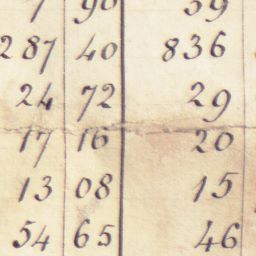 7 90 39
287 40 836
24 72 29
17 16 20
13 08 15
54 65 46